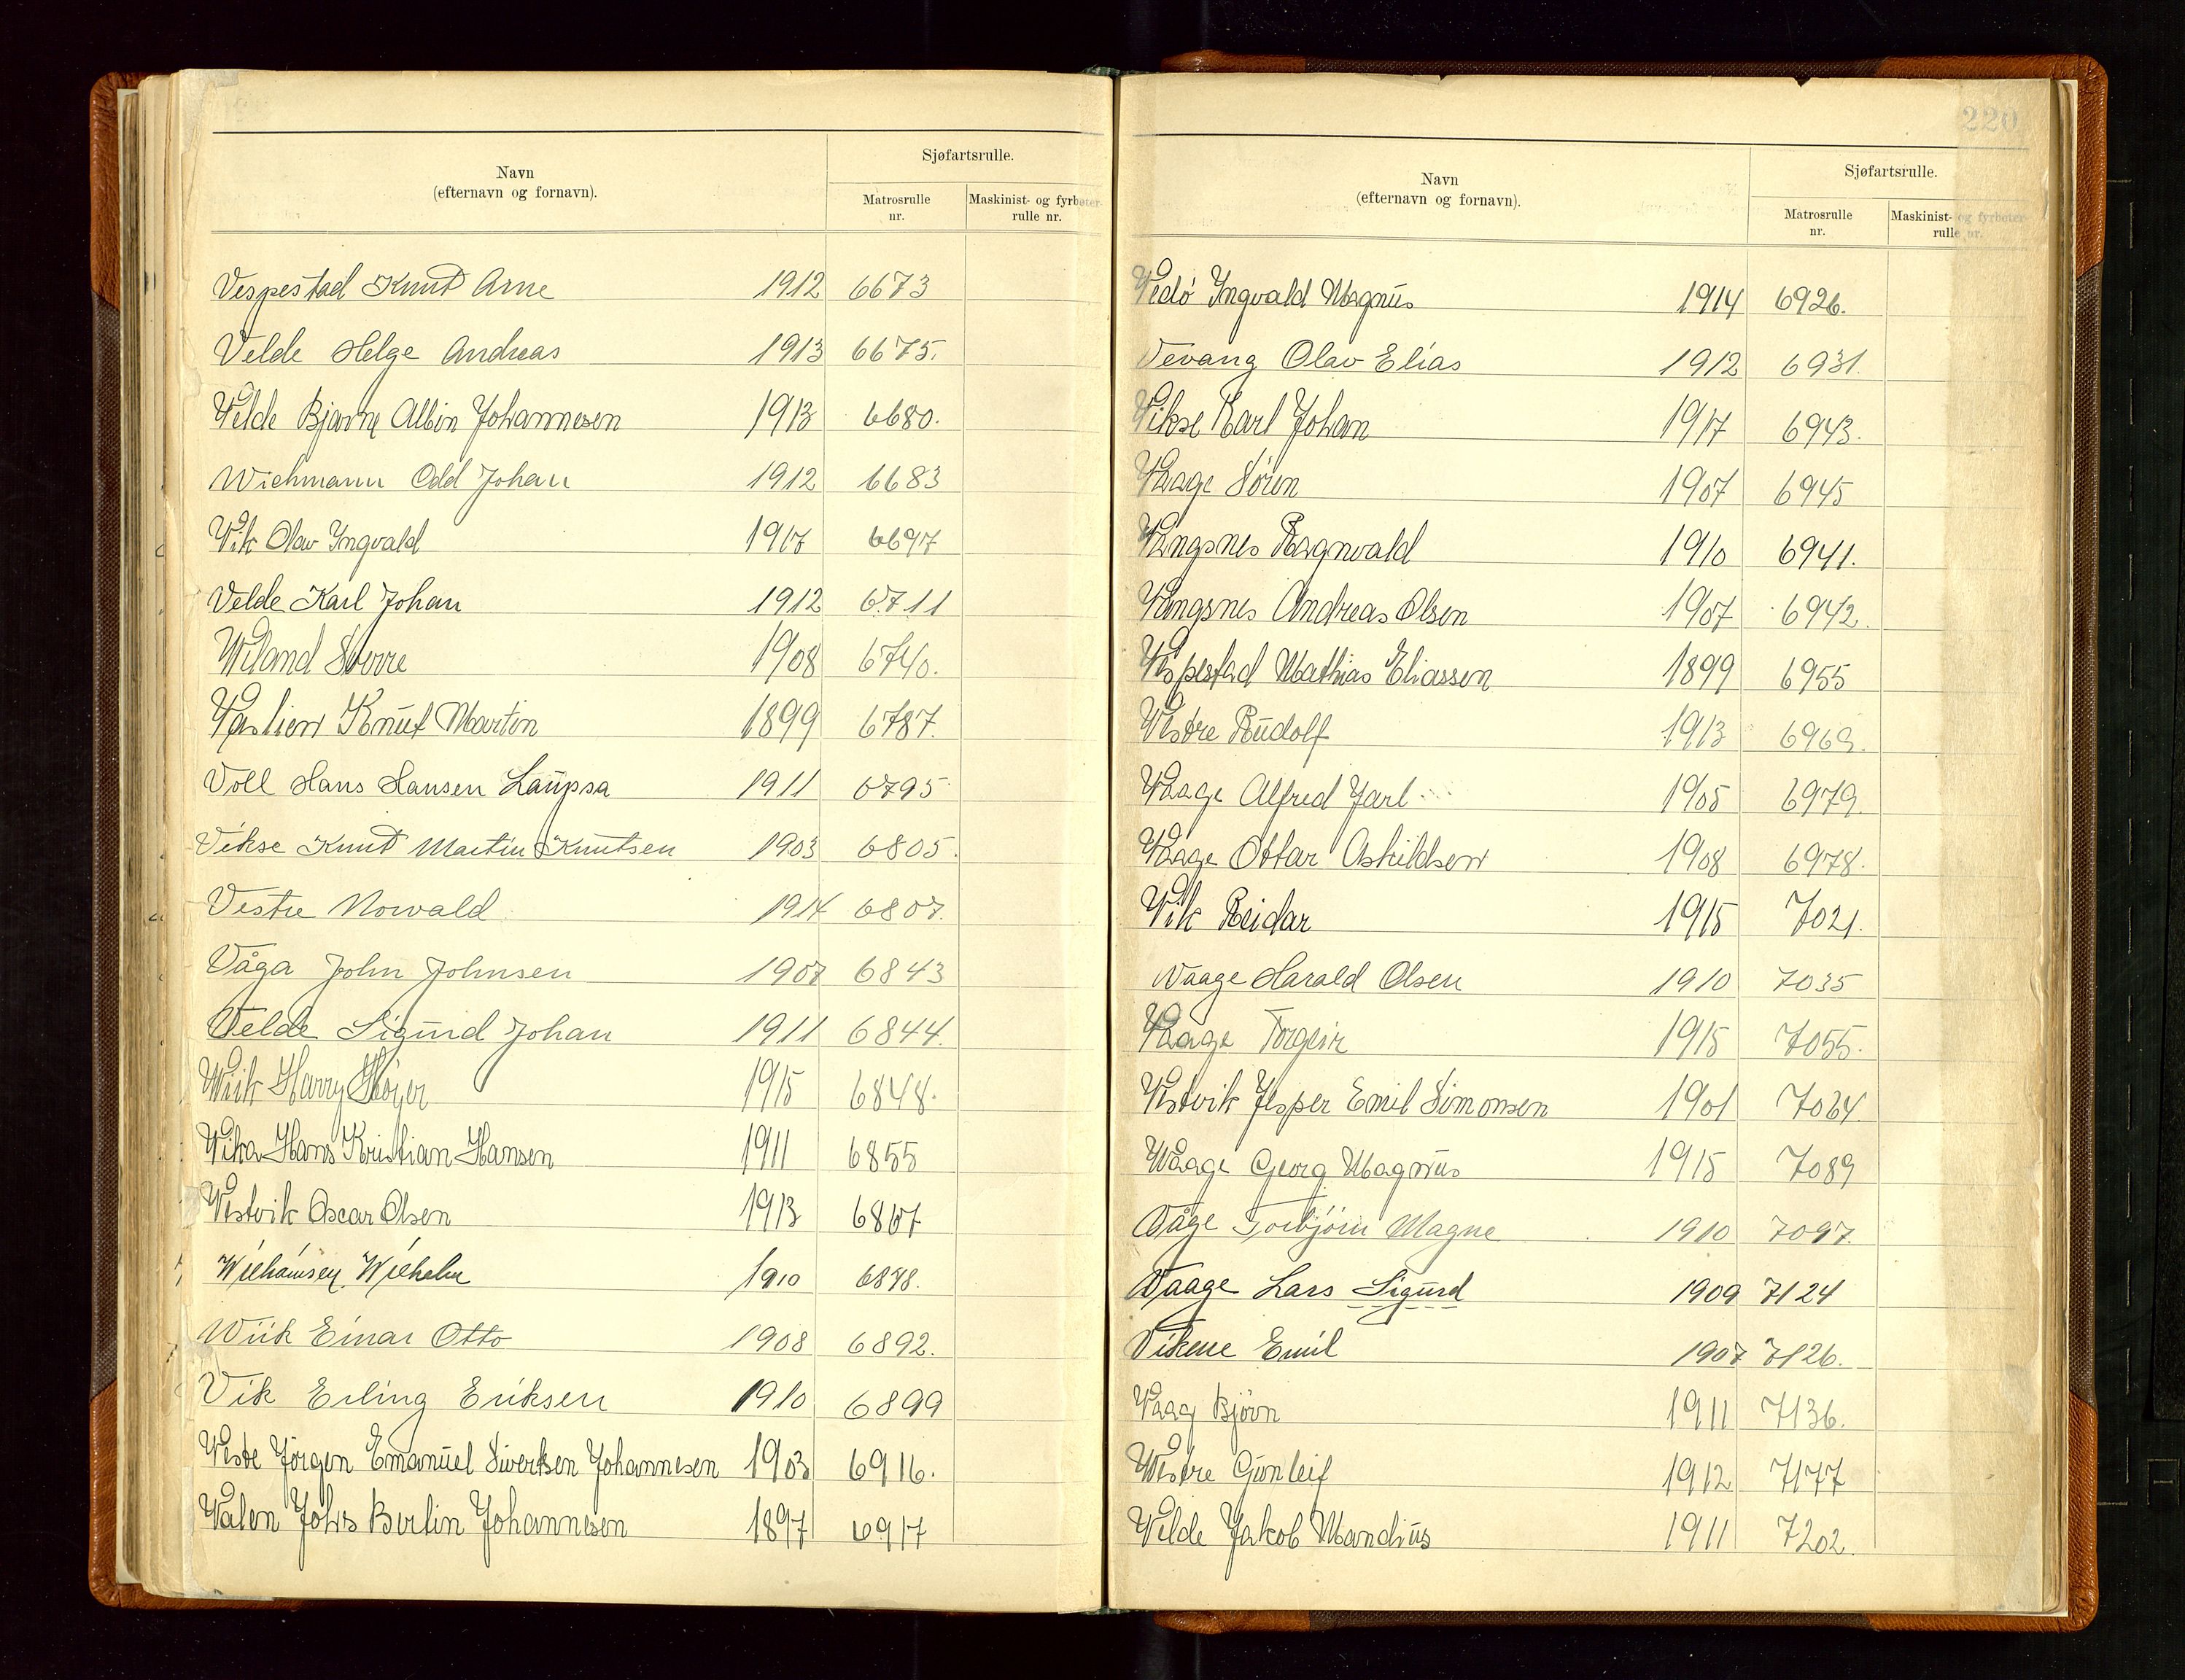 Navn
(efternavn og fornavn).
Sjøfartsrulle.
Matrosrulle nr.
Maskinist- og fyrbøter-rulle nr.
Vespestad Knut Arne 1912 6673
Velde Helge Andreas 1913 6675.
Velde Bjarne Albin Johannesen 1913 6680.
Wichmann Odd Johan 1912 6683
Vik Olav Ingvald 1917 6697
Velde Karl Johan 1912 6711
Viland Sverre 1908 6740.
Vaslien Knut Martin 1899 6787.
Voll Hans Hansen Laupsa 1911 6795
Vikse Knut Martin Knutsen 1903 6805.
Vestre Norvald 1914 6807.
Våga John Johnsen 1907 6843
Velde Sigurd Johan 1911 6844.
Wiik Harry Høyer 1915 6848.
Vika Hans Kristian Hansen 1911 6855
Vestvik Oscar Olsen 1913 6867
Wilhelm 1910
Wiik Einar Otto 1908 6892.
Vik Erling Eriksen 1910 6899
Veste Jørgen Emanuel Siverksen Johannesen 1903 6916.
Valen Johs Berlin Johannesen 1897 6917
220
Navn
(efternavn og fornavn).
Sjøfartsrulle.
Matrosrulle nr.
Maskinist- og fyrbøter-rulle nr.
Vedø Ingvald Magnus 1914 6926.
Vevang Olav Elias 1912 6931.
Vikse Karl Johan 1917 6943.
Vaage Søren 1907 6945
Vangsnes Ragnvald 1910 6941.
Vangsnes Andreas Olsen 1907 6942.
Vespestad Mathias Eliassen 1899 6955
Vestre Rudolf 1913 6969.
Vaage Alfred Jarl 1905 6979.
Vaage Ottar Askildsen 1908 6978.
Vik Reidar 1915 7021.
Waage Harald Olsen 1910 7035
Vaage Torgeir 1915 7055.
Vestvik Jesper Emil Simonsen 1901 7064.
Waage Georg Magnus 1915 7089
Våge Torbjørn Magne 1910 7097.
Vaage Lars Sigurd 1909 7124
Vikene Emil 1907 7126.
Vaag Bjørn 1911 7136.
Vestre Gunleif 1912 7177
Velde Jakob Mandius 1911 7202.